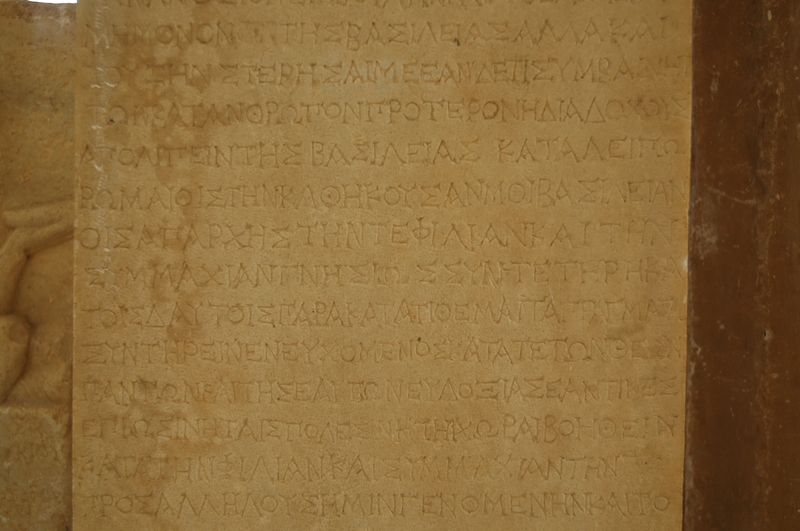 ΜΗΜΟΝΟΝ ΤΗΣΒΑΣΙΛΕΙΑΣΑΛΛΑΚΑΙ
ΤΟΥΣΗΝΣΤΕΡΗΣΑΙΜΕΕΑΝΔΕΤΙΣΥΜΒΑΙΝΗΙ
ΤΩΝΚΑΤΑΝΘΡΩΠΟΝΠΡΟΤΕΡΟΝΗΔΙΑΔΟΧΟΥΣ
ΑΠΟΛΙΠΕΙΝΤΗΣΒΑΣΙΛΕΙΑΣ ΚΑΤΑΛΕΙΠΩ
ΡΩΜΑΙΟΙΣΤΗΝΚΑΘΗΚΟΥΣΑΝΜΟΙΒΑΣΙΛΕΙΑΝ
ΟΙΣΑΠΑΡΧΗΣΤΗΝΤΕΦΙΛΙΑΝΚΑΙΤΗΝ
ΣΥΜΜΑΧΙΑΝΓΝΗΣΙΩΣΣΥΝΤΕΤΗΡΗΚΑ
ΤΟΙΣΔΑΥΤΟΙΣΠΑΡΑΚΑΤΑΤΙΘΕΜΑΙΤΑΠΡΑΓΜΑΤΑ
ΣΥΝΤΗΡΕΙΝΕΝΕΥΧΟΜΕΝΟΣΚΑΤΑΤΕΤΩΝΘΕΩΝ
ΠΑΝΤΩΝΚΑΙΤΗΣΕΑΥΤΩΝΕΥΔΟΞΙΑΣΕΑΝΤΙΝΕΣ
ΕΠΙΩΣΙΝΗΤΑΙΣΠΟΛΕΣΙΝΗΤΗΙΧΩΡΑΙΒΟΗΘΕΙΝ
ΚΑΤΑΤΗΝΦΙΛΙΑΝΚΑΙΣΥΜΜΑΧΙΑΝΤΗΝ
ΠΡΟΣΑΛΛΗΛΟΥΣΗΜΙΝΓΕΝΟΜΕΝΗΝΚΑΙΤΟ